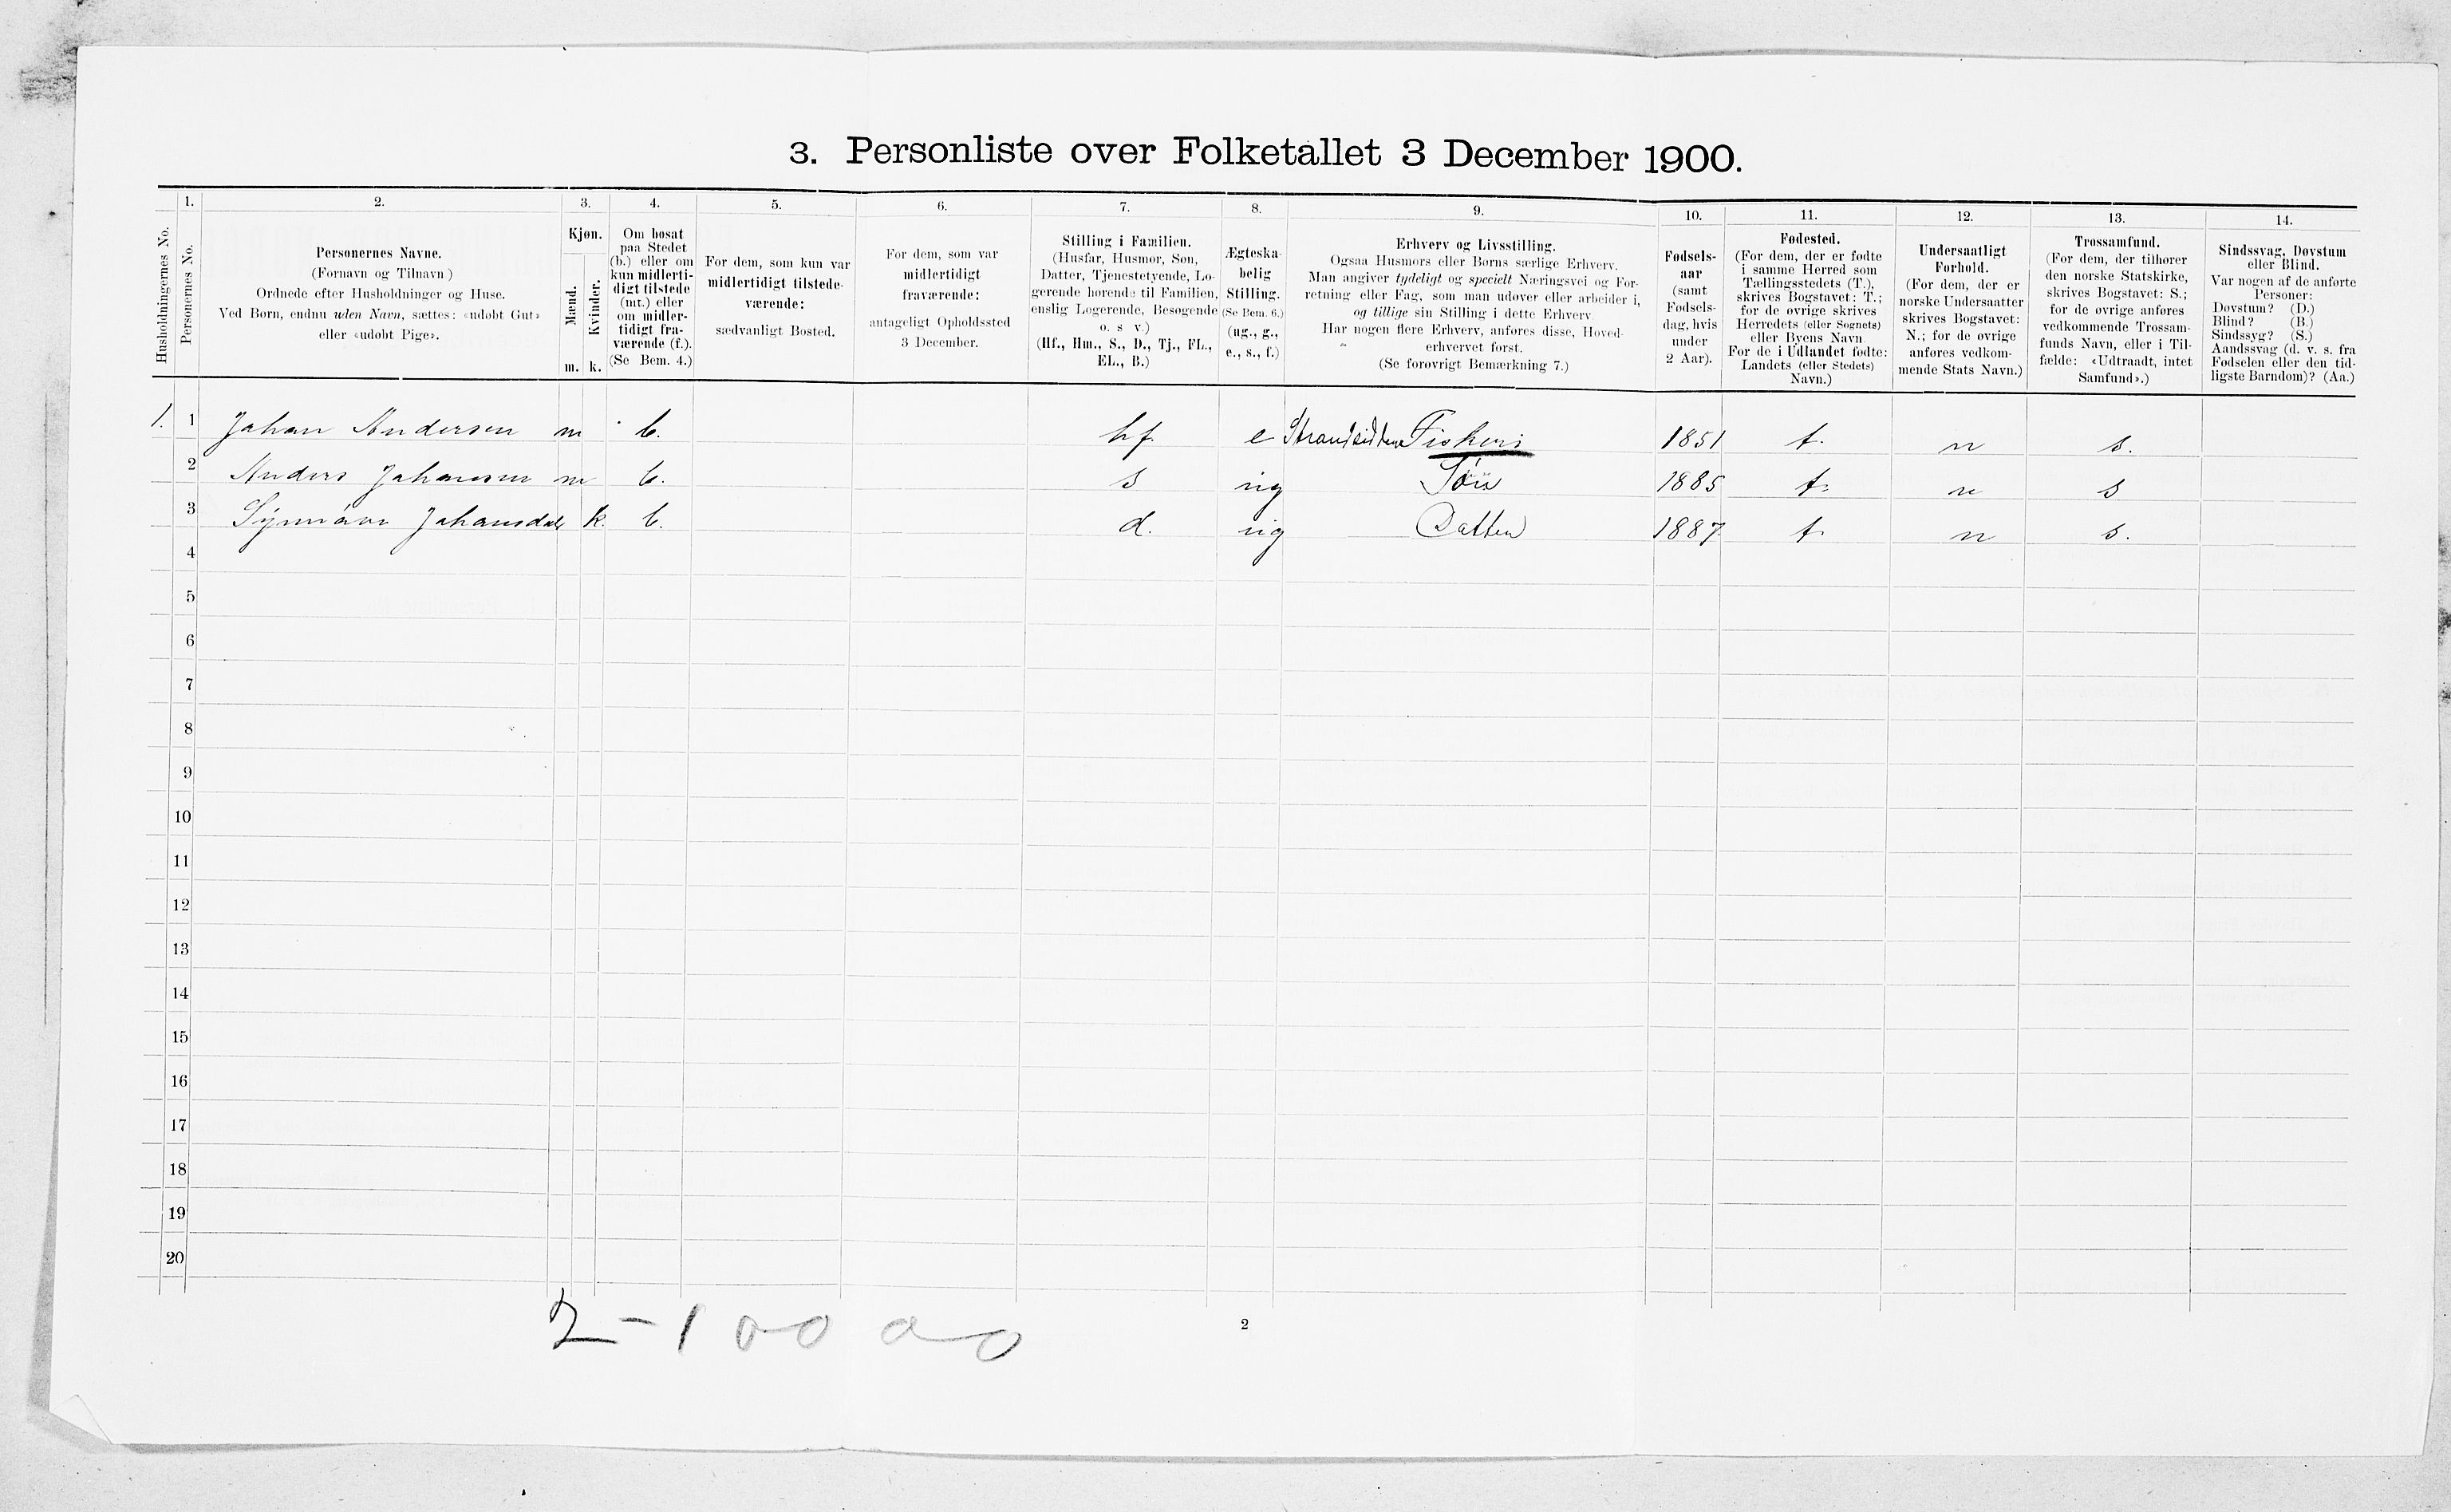 3. Personliste over Folketallet 3 December 1900.
Husholdningernes No.
1.
Personernes No.
2.
Personernes Navne.
(Fornavn og Tilnavn)
Ordnede efter Husholdninger og Huse.
Ved Børn, endnu uden Navn, sættes: «udøbt Gut»
eller «udøbt Pige».
3.
Kjøn.
Mænd.
Kvinder.
m. k.
4.
Om bosat
paa Stedet
(b.) eller om
kun midlerti-
digt tilstede
(mt.) eller
om midler-
tidigt fra-
værende (f.).
(Se Bem. 4.)
5.
For dem, som kun var
midlertidigt tilstede-
værende:
sædvanligt Bosted.
6.
For dem, som var
midlertidigt
fraværende:
antageligt Opholdssted
3 December.
7.
Stilling i Familien.
(Husfar, Husmor, Søn,
Datter, Tjenestetyende, Lo-
gerende hørende til Familien,
enslig Logerende, Besøgende
o. s v.)
(Hf., Hm., S., D., Tj., FL.,
EL., B.)
8.
Ægteska-
belig
Stilling.
(Se Bem. 6.)
(ug., g.,
e., s., f.)
9.
Erhverv og Livsstilling.
Ogsaa Husmors eller Børns særlige Erhverv.
Man angiver tydeligt og specielt Næringsvei og For-
retning eller Fag, som man udøver eller arbeider i,
og tillige sin Stilling i dette Erhverv.
Har nogen flere Erhverv, anføres disse, Hoved-
erhvervet først.
(Se forøvrigt Bemærkning 7.)
10.
Fødsels-
aar
(samt
Fødsels-
dag, hvis
under
2 Aar).
11.
Fødested.
(For dem, der er fødte
i samme Herred som
Tællingsstedets (T.),
skrives Bogstavet: T.;
for de øvrige skrives
Herredets (eller Sognets)
eller Byens Navn.
For de i Udlandet fødte:
Landets (eller Stedets)
Navn.)
12.
Undersaatligt
Forhold.
(For dem, der er
norske Undersaatter
skrives Bogstavet:
N.; for de øvrige
anføres vedkom-
mende Stats Navn.)
13.
Trossamfund.
(For dem, der tilhører
den norske Statskirke,
skrives Bogstavet: S.;
for de øvrige anføres
vedkommende Trossam-
funds Navn, eller i Til-
fælde: «Udtraadt, intet
Samfund».)
14.
Sindssvag, Døvstum
eller Blind.
Var nogen af de anførte
Personer:
Døvstum? (D.)
Blind? (B.)
Sindssyg? (S.)
Aandssvag (d. v. s. fra
Fødselen eller den tid-
ligste Barndom)? (Aa.)
1. 1 Johan Andersen m b. hf e Strandsidder Fiskeri 1851 t. n s.
2 Anders Johansen m b. s ug Søn 1885 t. n s
3 k. b. d. ug Datter 1887 t. n s.
4
5
6
7
8
9
10
11
12
13
14
15
16
17
18
19
20
2-1 00 00
2